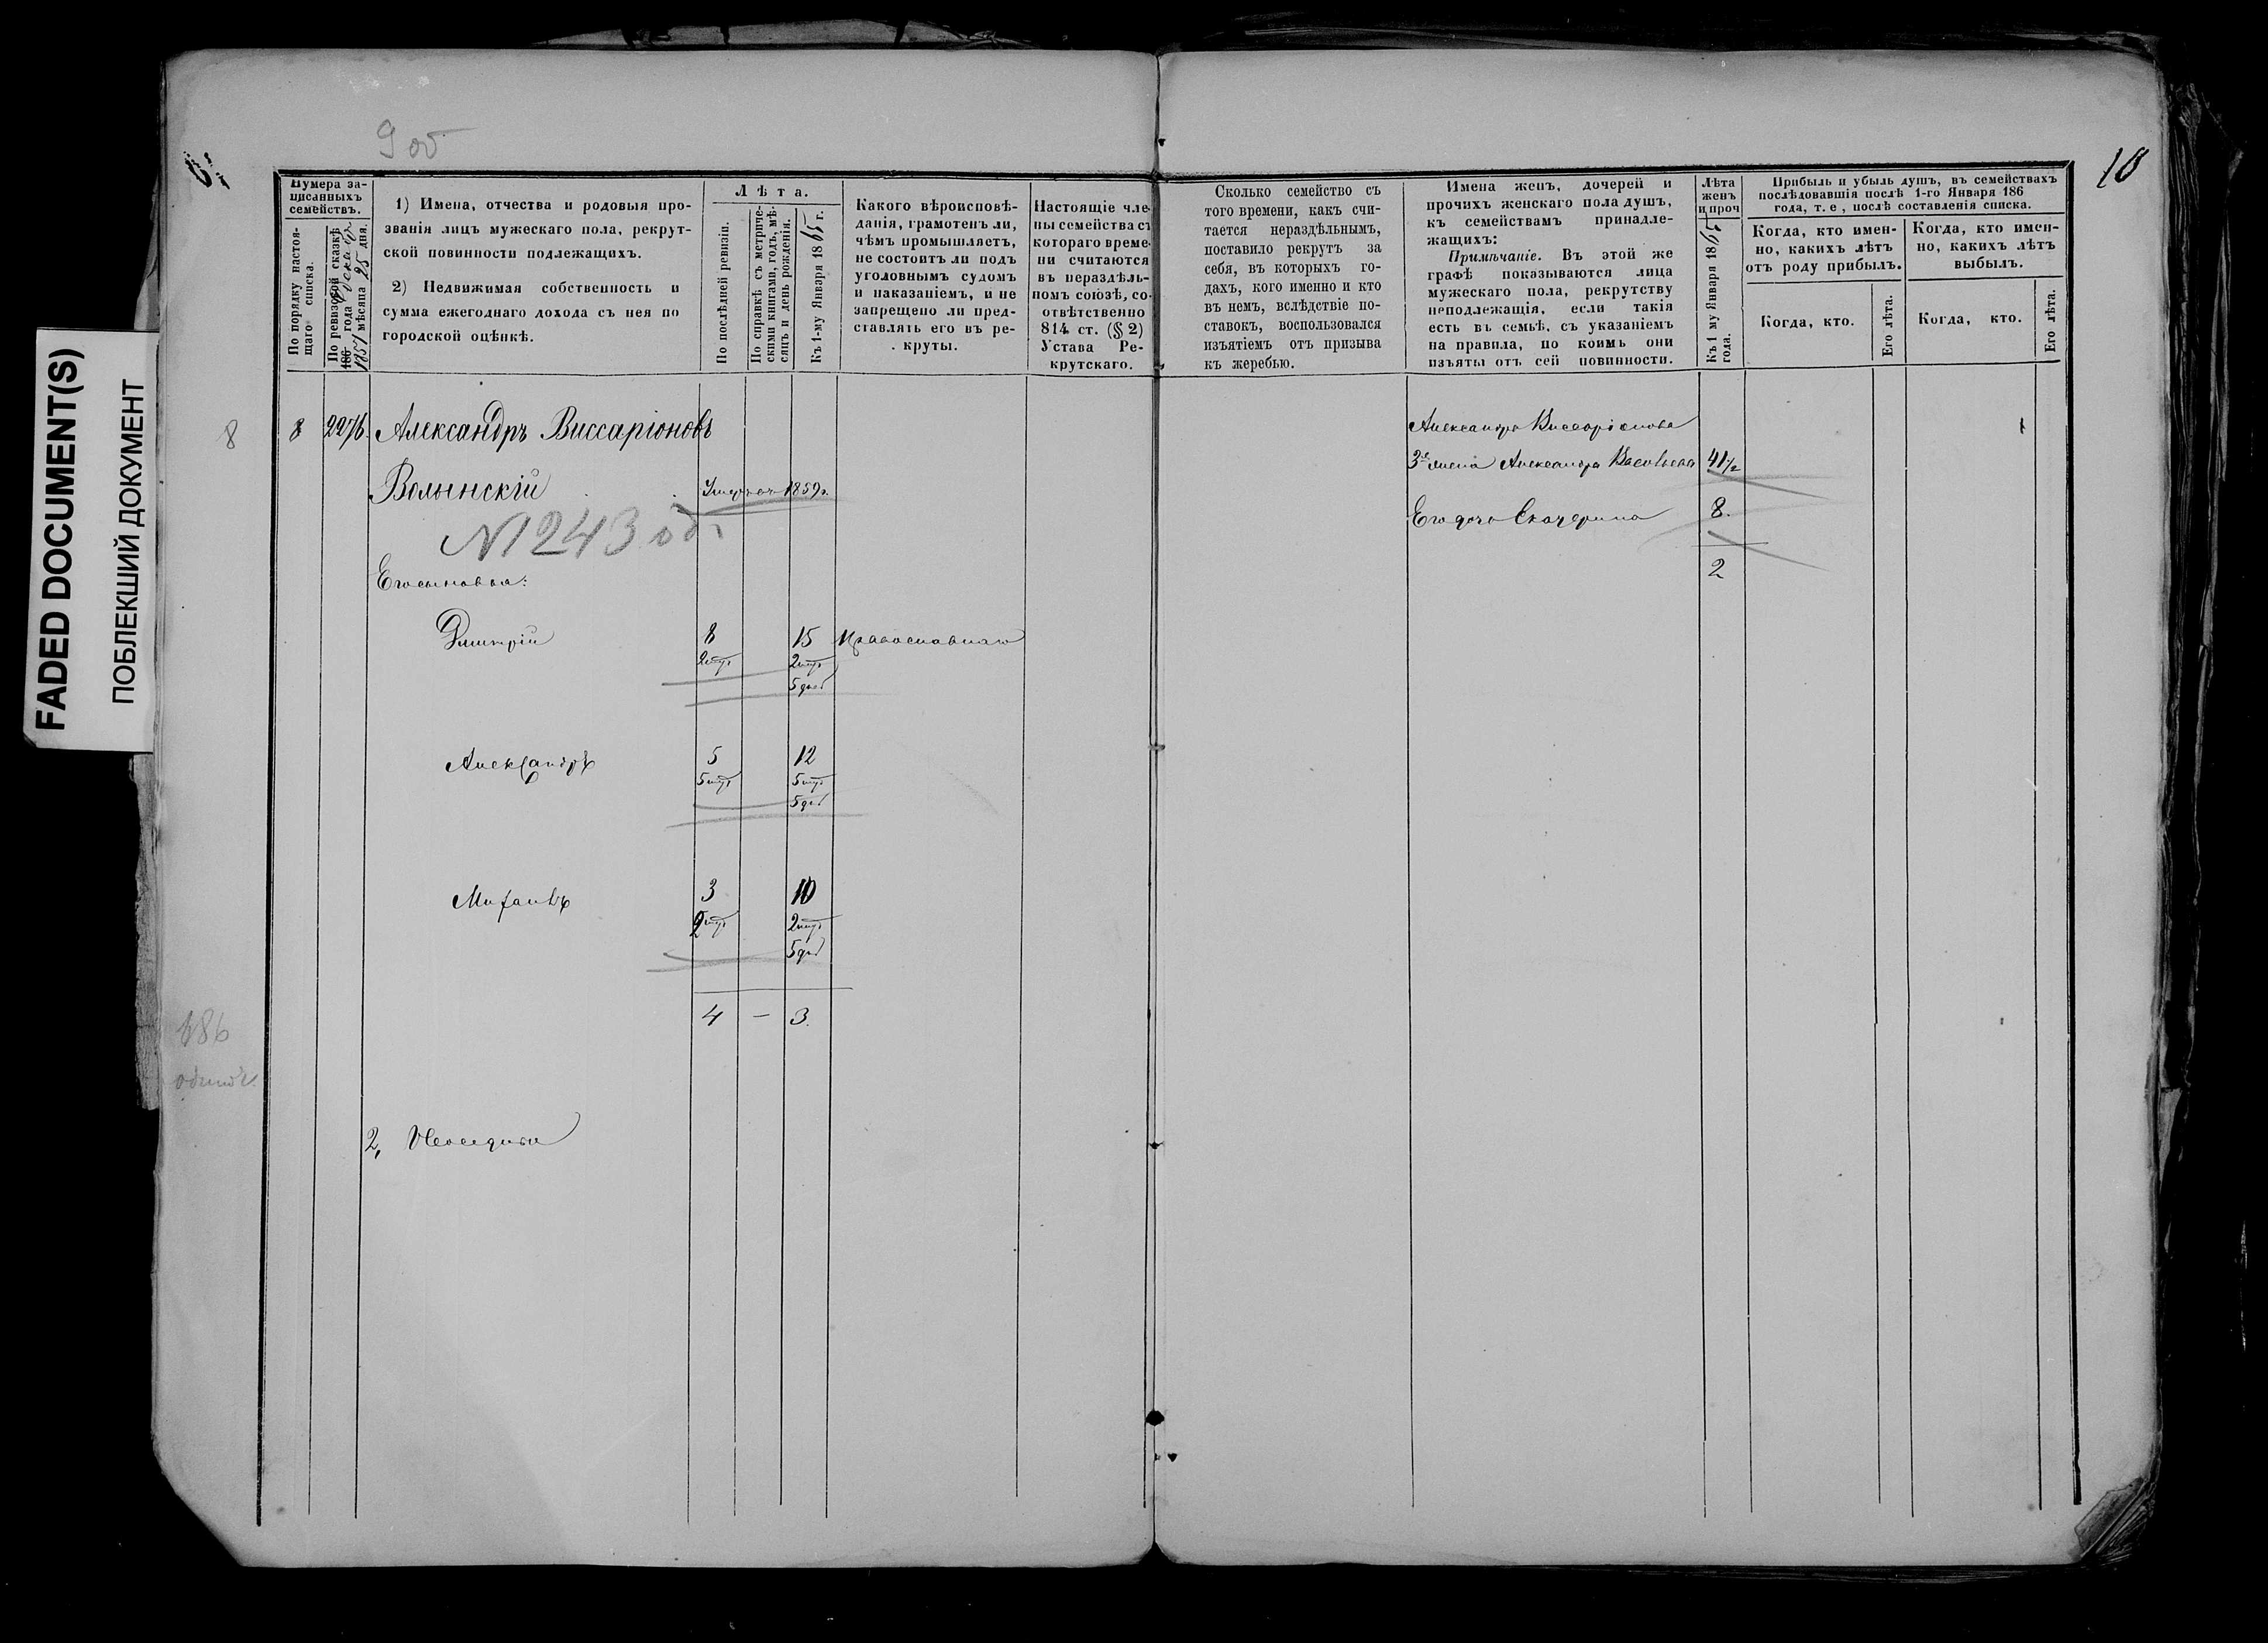 FADED DOCUMENT(S)
ПОБЛЕКШИЙ ДОКУМЕНТ
9 об
10
Нумера за-
писанныхъ
семействъ.
По порядку настоя-
щаго списка.
По ревизской сказкѣ
186 года
1857 мѣсяца 25 дня.
1) Имена, отчества и родовыя про-
званія лицъ мужескаго пола, рекрут-
ской повинности подлежащихъ.
2) Недвижимая собственность и
сумма ежегоднаго дохода съ нея по
городской оцѣнкѣ.
Лѣта.
По послѣдней ревизіи.
По справкѣ съ метриче-
скими книгами, годъ, мѣ-
сяцъ и день рожденія.
Къ 1-му Января 1865 г.
Какого вѣроисповѣ-
данія, грамотенъ ли,
чѣмъ промышляетъ,
не состоитъ ли подъ
уголовнымъ судомъ
и наказаніемъ, и не
запрещено ли пред-
ставлять его въ ре-
круты.
Настоящіе чле-
ны семейства съ
котораго време-
ни считаются
въ нераздѣль-
номъ союзѣ, со-
отвѣтственно
814 ст. (§ 2)
Устава Ре-
крутскаго.
Сколько семейство съ
того времени, какъ счи-
тается нераздѣльнымъ,
поставило рекрутъ за
себя, въ которыхъ го-
дахъ, кого именно и кто
въ немъ, вслѣдствіе по-
ставокъ, воспользовался
изъятіемъ отъ призыва
къ жеребью.
Имена женъ, дочерей и
прочихъ женскаго пола душъ,
къ семействамъ принадле-
жащихъ:
Примѣчаніе. Въ этой же
графѣ показываются лица
мужескаго пола, рекрутству
неподлежащія, если такія
есть въ семьѣ, съ указаніемъ
на правила, по коимъ они
изъяты отъ сей повинности.
Лѣта
женъ
и проч
Къ 1 му Января 1865
года.
Прибыль и убыль душъ, въ семействахъ
послѣдовавшія послѣ 1-го Января 186
года, т. е, послѣ составленія списка.
Когда, кто имен-
но, какихъ лѣтъ
отъ роду прибылъ.
Когда, кто.
Его лѣта.
Когда, кто имен-
но, какихъ лѣтъ
выбылъ.
Когда, кто.
Его лѣта.
8 8 2276. Александръ Виссаріоновъ
Волынскій Умеръ 1859г.
№1243 об.
Его сыновья:
Дмитрій 8 15 Православнаго
2 мѣс 2 мѣс
5 дней
Александръ 5 12
5 мѣс 5 мѣс
5 дней
Михаилъ 3 10
2 мѣс 2 мѣс
5 дней
4 — 3.
186
2, Неседжи
Александра Виссаріонова
3я жена Александра Васильева 41½
Его дочь Екатерина 8.
2